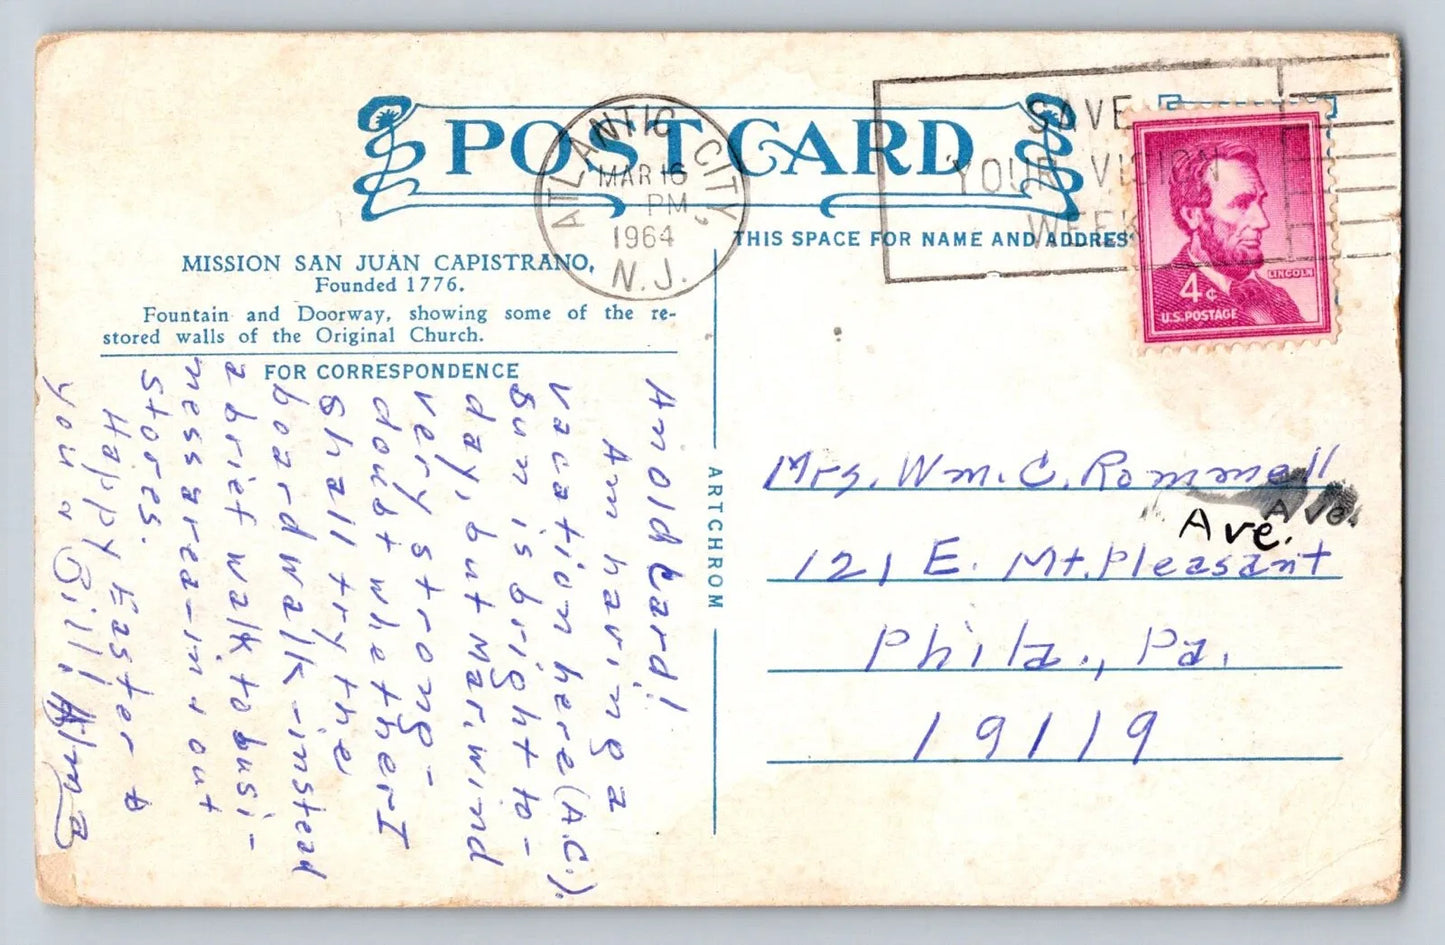 POST CARD
ATLANTIC CITY,
MAR 16
PM
1964
N.J.
SAVE
YOUR VISION
WEEK
LINCOLN
4¢
U.S. POSTAGE
MISSION SAN JUAN CAPISTRANO,
Founded 1776.
Fountain and Doorway, showing some of the re-
stored walls of the Original Church.
FOR CORRESPONDENCE
THIS SPACE FOR NAME AND ADDRESS
ARTCHROM
An old card!
Am having a
vacation here (A.C.).
Sun is bright to-
day, but Mar. wind
very strong-
doubt whether I
shall try the
boardwalk-instead
a brief walk to busi-
ness area-in & out
stores.
Happy Easter to
you & Bill! Alma
Mrs. Wm. C. Rommell
Ave.
Ave.
121 E. Mt. Pleasant
Phila., Pa.
19119